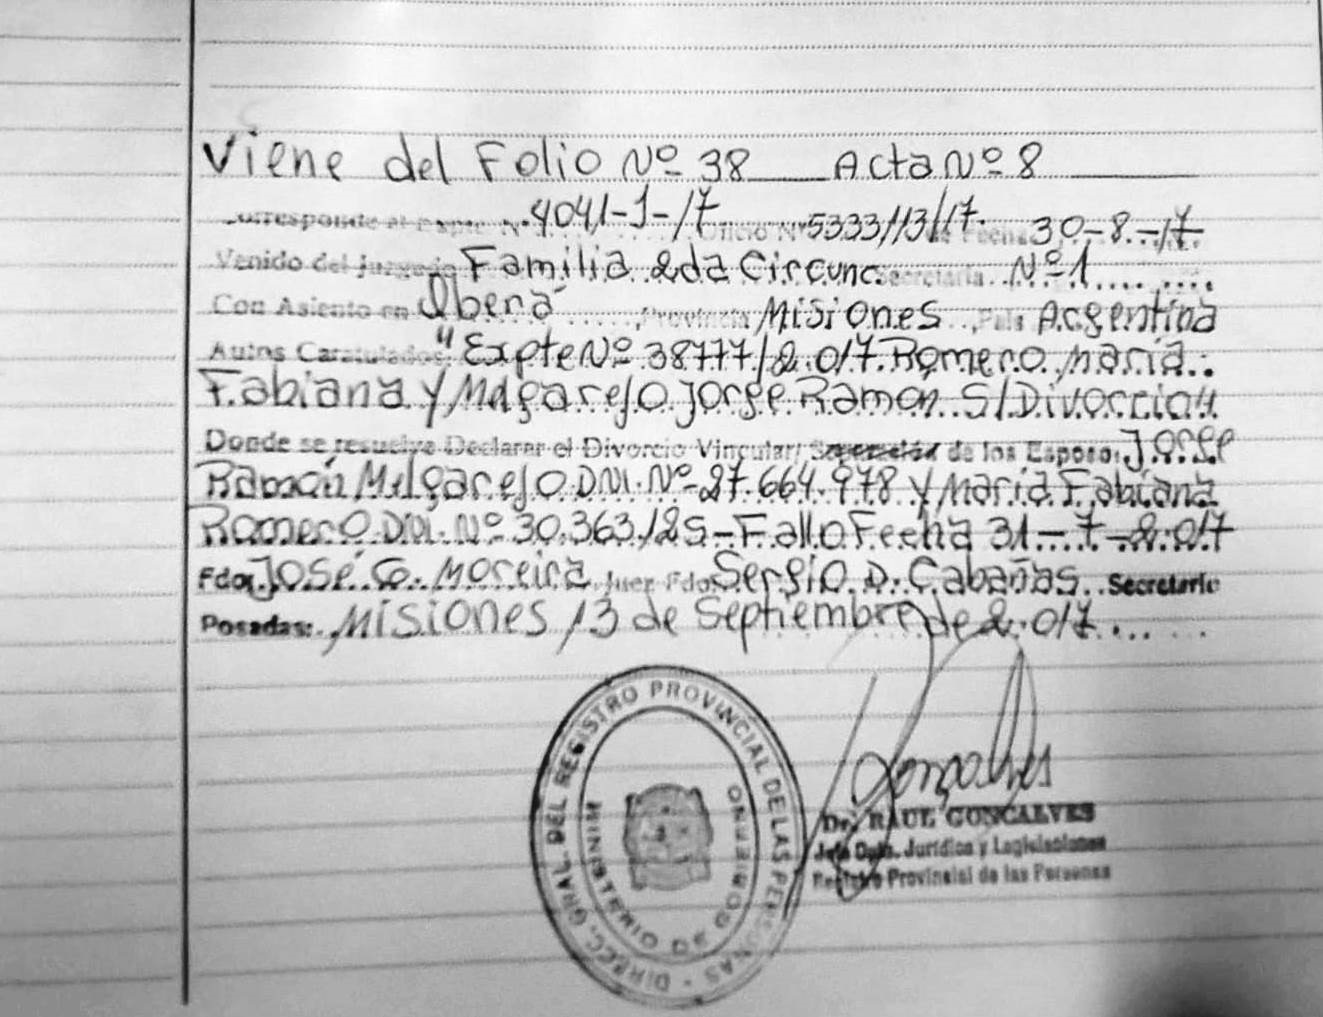 Viene del Folio Nº 38 Acta Nº 8
Corresponde al Expte Nº 4041-J-17 Oficio Nº 5333/13/17. de Fecha 30-8.-17
Venido del Juzgado Familia 2da Circunc. Secretaría Nº 1
Con Asiento en Oberá, Provincia Misiones, País Argentina
Autos Caratulados: "Expte Nº 38777/2.017. Romero, María
Fabiana y Melgarejo Jorge Ramón S/Divorcio"
Donde se resuelve Declarar el Divorcio Vincular/ Separación de los Esposo: Jorge
Ramón Melgarejo DNI. Nº 27.664.978 y María Fabiana
Romero DNI. Nº 30.363.125 - Fallo Fecha 31-7-2.017
Fdo: José G. Moreira Juez Fdo: Sergio D. Cabañas. Secretario
Posadas: Misiones 13 de Septiembre de 2.017
DIRECC. GRAL. DEL REGISTRO PROVINCIAL DE LAS PERSONAS
MINISTERIO DE GOBIERNO
Goncalves
Dr. RAUL GONCALVES
Jefe Dpto. Jurídico y Legislaciones
Registro Provincial de las Personas